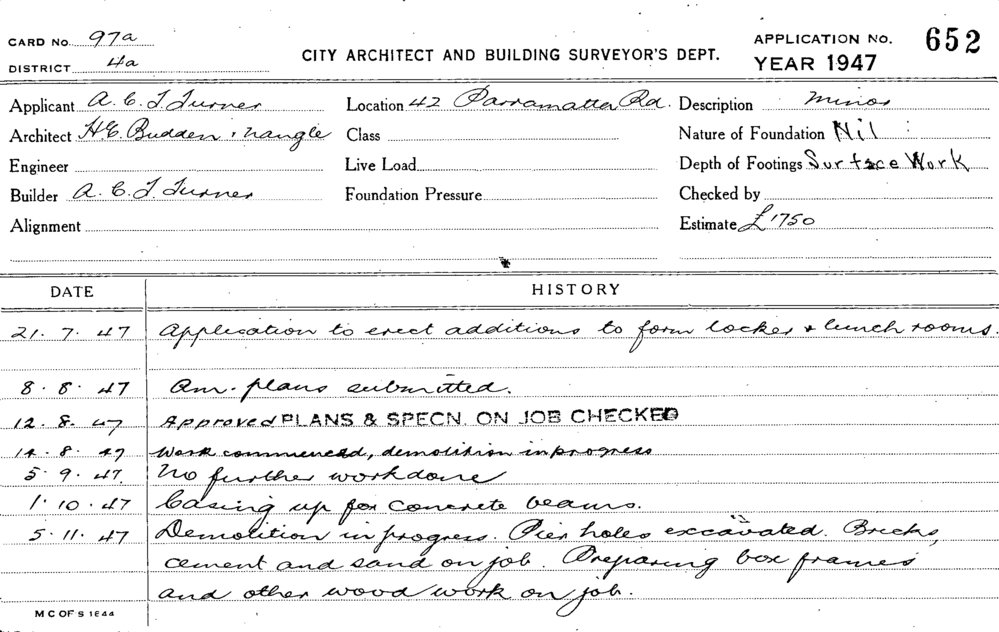 CARD No. 97a
DISTRICT 4a
CITY ARCHITECT AND BUILDING SURVEYOR'S DEPT.
APPLICATION No. 652
YEAR 1947
Applicant A. C. J. Turner Location 42 Parramatta Rd. Description Minor
Architect H.E. Budden & Nangle Class Nature of Foundation Nil
Engineer Live Load Depth of Footings Surface Work
Builder A. C. J. Turner Foundation Pressure Checked by
Alignment Estimate £1750
DATE HISTORY
21. 7. 47 Application to erect additions to form locker & lunch rooms.
8. 8. 47 Am. plans submitted.
12. 8. 47 Approved PLANS & SPECN. ON JOB CHECKED
14. 8. 47 Work commenced, demolition in progress
5. 9. 47. No further work done
1. 10. 47 Casing up for concrete beams.
5. 11. 47 Demolition in progress. Pier holes excavated. Bricks,
cement and sand on job. Preparing box frames
and other wood work on job.
M C OF S 1844